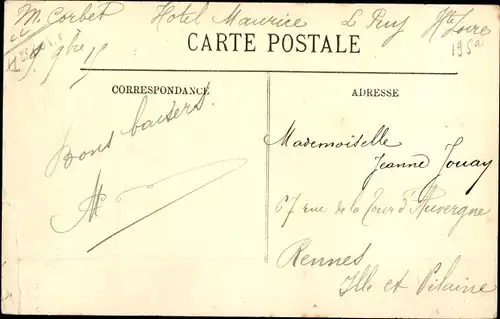 M. Corbet Hotel Maurice Le Puy Hte Loire
9 9bre 15
195
CARTE POSTALE
CORRESPONDANCE
ADRESSE
Bons baisers.
M
Mademoiselle
Jeanne Jouay
67 rue de la Tour d'Auvergne
Rennes
Ille et Vilaine